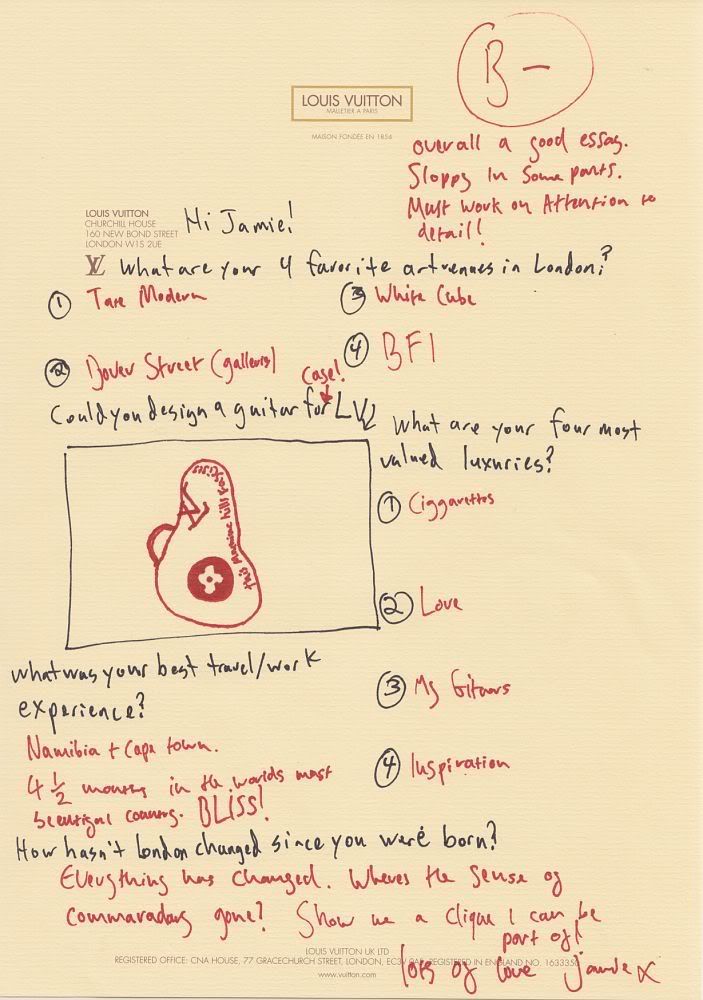 B -
LOUIS VUITTON
MALLETIER A PARIS
MAISON FONDÉE EN 1854
overall a good essay.
Sloppy In Some parts.
Must work on Attention to
detail!
LOUIS VUITTON
CHURCHILL HOUSE
160 NEW BOND STREET
LONDON W1S 2UE
Hi Jamie!
LV What are your 4 favorite art venues in London?
① Tate Modern
③ White Cube
② Dover Street (galleris)
④ BFI
case!
Could you design a guitar for LV?
What are your four most
valued luxuries?
this machine kills fascists
LV
① Ciggarettes
② Love
③ My Gitaars
④ Inspiration
What was your best travel/work
experience?
Namibia + Cape town.
4 1/2 months in the worlds most
beautiful country. BLISS!
How hasn't London changed since you were born?
Everything has changed. Wheres the sense of
commaradary gone? Show me a clique I can be
part of!
lots of love Jamie x
LOUIS VUITTON UK LTD
REGISTERED OFFICE: CNA HOUSE, 77 GRACECHURCH STREET, LONDON, REGISTERED IN ENGLAND NO.
www.vuitton.com